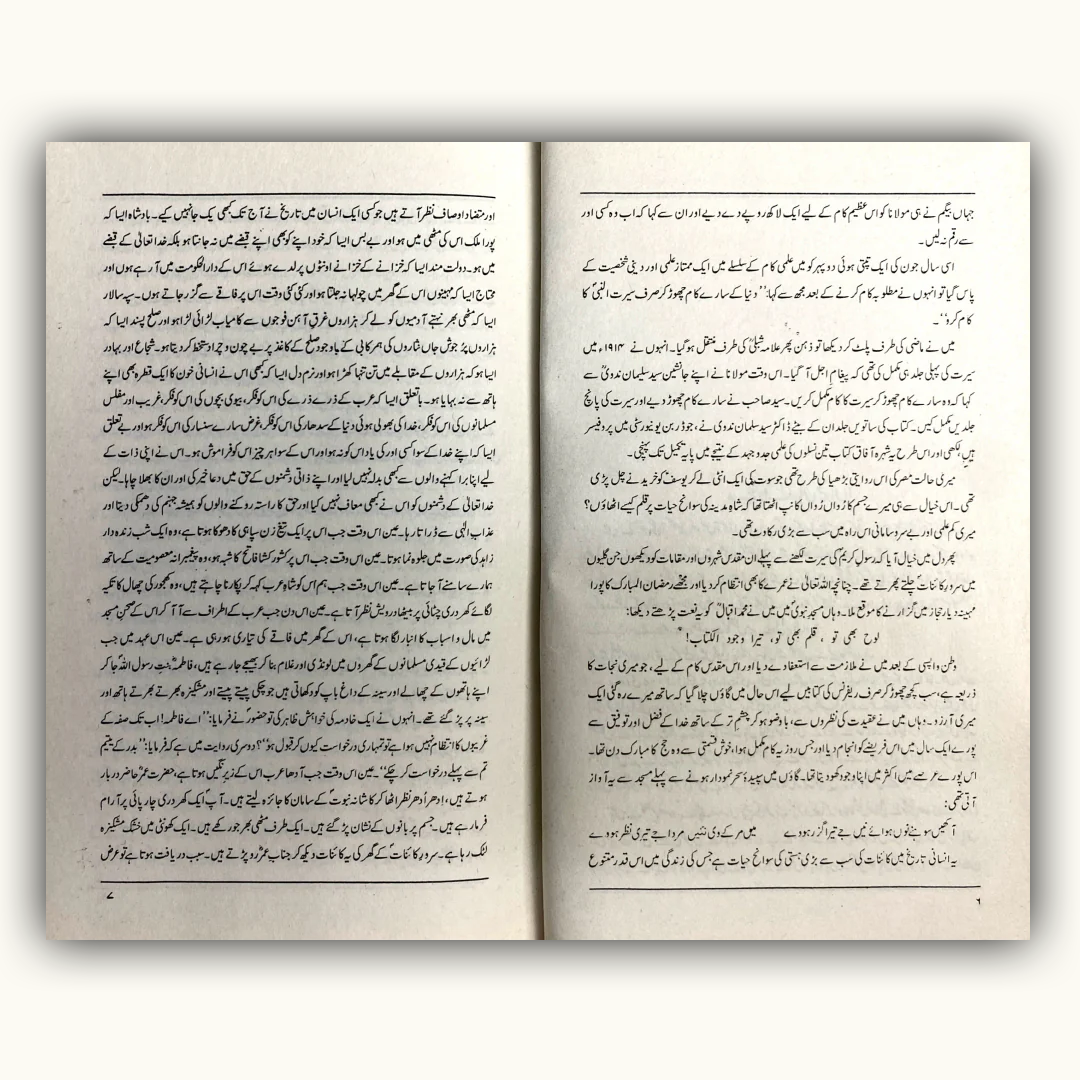 جہاں بیگم نے ہی مولانا کو اس عظیم کام کے لیے ایک لاکھ روپے دے دیے اور ان سے کہا کہ اب وہ کسی اور
سے رقم نہ لیں۔
اسی سال جون کی ایک تپتی ہوئی دوپہر کو میں علمی کام کے سلسلے میں ایک ممتاز علمی اور دینی شخصیت کے
پاس گیا تو انہوں نے مطلوبہ کام کرنے کے بعد مجھ سے کہا: ”دنیا کے سارے کام چھوڑ کر صرف سیرت النبیؐ کا
کام کرو“۔
میں نے ماضی کی طرف پلٹ کر دیکھا تو ذہن پھر علامہ شبلیؒ کی طرف منتقل ہو گیا۔ انہوں نے ۱۹۱۴ء میں
سیرت کی پہلی جلد ہی مکمل کی تھی کہ پیغامِ اجل آ گیا۔ اس وقت مولانا نے اپنے جانشین سید سلیمان ندویؒ سے
کہا کہ وہ سارے کام چھوڑ کر سیرت کا کام مکمل کریں۔ سید صاحب نے سارے کام چھوڑ دیے اور سیرت کی پانچ
جلدیں مکمل کیں۔ کتاب کی ساتویں جلد ان کے بیٹے ڈاکٹر سید سلمان ندوی نے، جو ڈربن یونیورسٹی میں پروفیسر
ہیں لکھی اور اس طرح یہ شہرہ آفاق کتاب تین نسلوں کی علمی جدوجہد کے نتیجے میں پایہ تکمیل تک پہنچی۔
میری حالت مصر کی اس روایتی بڑھیا کی طرح تھی جو سوت کی ایک انٹی لے کر یوسفؑ کو خریدنے چل پڑی
تھی۔ اس خیال سے ہی میرے جسم کا رُواں رُواں کانپ اٹھتا تھا کہ شاہِ مدینہ کی سوانح حیات پر قلم کیسے اٹھاؤں؟
میری کم علمی اور بے سروسامانی اس راہ میں سب سے بڑی رکاوٹ تھی۔
پھر دل میں خیال آیا کہ رسولِ کریمؐ کی سیرت لکھنے سے پہلے ان مقدس شہروں اور مقامات کو دیکھوں جن گلیوں
میں سرورِ کائناتؐ چلتے پھرتے تھے۔ چنانچہ اللہ تعالیٰ نے عمرے کا بھی انتظام کر دیا اور مجھے رمضان المبارک کا پورا
مہینہ دیارِ حجاز میں گزارنے کا موقع ملا۔ وہاں مسجدِ نبویؐ میں میں نے محمد اقبالؒ کو یہ نعت پڑھتے دیکھا:
لوح بھی تو ، قلم بھی تو، تیرا وجود الکتاب!
وطن واپسی کے بعد میں نے ملازمت سے استعفا دے دیا اور اس مقدس کام کے لیے، جو میری نجات کا
ذریعہ ہے، سب کچھ چھوڑ کر صرف ریفرنس کی کتابیں لیے اس حال میں گاؤں چلا گیا کہ ساتھ میرے رہ گئی ایک
میری آرزو۔ وہاں میں نے عقیدت کی نظروں سے، باوضو ہو کر چشمِ تر کے ساتھ خدا کے فضل اور توفیق سے
پورے ایک سال میں اس فریضے کو انجام دیا اور جس روز یہ کام مکمل ہوا، خوش قسمتی سے وہ حج کا مبارک دن تھا۔
اس پورے عرصے میں اکثر میں اپنا وجود کھو دیتا تھا۔ گاؤں میں سپیدۂ سحر نمودار ہونے سے پہلے مسجد سے یہ آواز
آتی تھی:
آکھیں سوہنے نوں ہوائے نیں جے تیرا گزر ہووے میں مر کے وی نئیں مردا جے تیری نظر ہووے
یہ انسانی تاریخ میں کائنات کی سب سے بڑی ہستی کی سوانح حیات ہے جس کی زندگی میں اس قدر متنوع
۶
اور متضاد اوصاف نظر آتے ہیں جو کسی ایک انسان میں تاریخ نے آج تک کبھی یک جا نہیں کیے۔ بادشاہ ایسا کہ
پورا ملک اس کی مٹھی میں ہو اور بے بس ایسا کہ خود اپنے کو بھی اپنے قبضے میں نہ جانتا ہو بلکہ خدا تعالیٰ کے قبضے
میں ہو۔ دولت مند ایسا کہ خزانے کے خزانے اونٹوں پر لدے ہوئے اس کے دارالحکومت میں آ رہے ہوں اور
محتاج ایسا کہ مہینوں اس کے گھر میں چولہا نہ جلتا ہو اور کئی کئی وقت اس پر فاقے سے گزر جاتے ہوں۔ سپہ سالار
ایسا کہ مٹھی بھر نہتے آدمیوں کو لے کر ہزاروں غرقِ آہن فوجوں سے کامیاب لڑائی لڑا ہو اور صلح پسند ایسا کہ
ہزاروں پُر جوش جاں نثاروں کی ہمرکابی کے باوجود صلح کے کاغذ پر بے چون و چرا دستخط کر دیتا ہو۔ شجاع اور بہادر
ایسا ہو کہ ہزاروں کے مقابلے میں تن تنہا کھڑا ہو اور نرم دل ایسا کہ کبھی اس نے انسانی خون کا ایک قطرہ بھی اپنے
ہاتھ سے نہ بہایا ہو۔ باتعلق ایسا کہ عرب کے ذرے ذرے کی اس کو فکر، بیوی بچوں کی اس کو فکر، غریب اور مفلس
مسلمانوں کی اس کو فکر، خدا کی بھولی ہوئی دنیا کے سدھار کی اس کو فکر، غرض سارے سنسار کی اس کو فکر ہو اور بے تعلق
ایسا کہ اپنے خدا کے سوا کسی اور کی یاد اس کو نہ ہو اور اس کے سوا ہر چیز اس کو فراموش ہو۔ اس نے اپنی ذات کے
لیے اپنا برا کہنے والوں سے کبھی بدلہ نہیں لیا اور اپنے ذاتی دشمنوں کے حق میں دعا خیر کی اور ان کا بھلا چاہا۔ لیکن
خدا تعالیٰ کے دشمنوں کو اس نے کبھی معاف نہیں کیا اور حق کا راستہ روکنے والوں کو ہمیشہ جہنم کی دھمکی دیتا اور
عذابِ الٰہی سے ڈراتا رہا۔ عین اس وقت جب اس پر ایک تیغ زن سپاہی کا دھوکا ہوتا ہے، وہ ایک شب زندہ دار
زاہد کی صورت میں جلوہ نما ہوتا۔ عین اس وقت جب اس پر کشور کشا فاتح کا شبہ ہو، وہ پیغمبرانہ معصومیت کے ساتھ
ہمارے سامنے آ جاتا ہے۔ عین اس وقت جب ہم اس کو شاہِ عرب کہہ کر پکارنا چاہتے ہیں، وہ کھجور کی چھال کا تکیہ
لگائے کھردری چٹائی پر بیٹھا درویش نظر آتا ہے۔ عین اس دن جب عرب کے اطراف سے آ آ کر اس کے صحنِ مسجد
میں مال و اسباب کا انبار لگا ہوتا ہے، اس کے گھر میں فاقے کی تیاری ہو رہی ہے۔ عین اس عہد میں جب
لڑائیوں کے قیدی مسلمانوں کے گھروں میں لونڈی اور غلام بنا کر بھیجے جا رہے ہیں، فاطمہؓ بنتِ رسول اللہؐ جا کر
اپنے ہاتھوں کے چھالے اور سینہ کے داغ باپ کو دکھاتی ہیں جو چکی پیستے پیستے اور مشکیزہ بھرتے بھرتے ہاتھ اور
سینہ پر پڑ گئے تھے۔ انہوں نے ایک خادمہ کی خواہش ظاہر کی تو حضورؐ نے فرمایا: ”اے فاطمہ! اب تک صفہ کے
غریبوں کا انتظام نہیں ہوا ہے تو تمہاری درخواست کیوں کر قبول ہو“؟ دوسری روایت میں ہے کہ فرمایا: ”بدر کے یتیم
تم سے پہلے درخواست کر چکے“۔ عین اس وقت جب آدھا عرب اس کے زیرِ نگیں ہوتا ہے، حضرت عمرؓ حاضرِ دربار
ہوتے ہیں، اِدھر اُدھر نظر اٹھا کر کاشانۂ نبوتؐ کے سامان کا جائزہ لیتے ہیں۔ آپؐ ایک کھردری چارپائی پر آرام
فرما رہے ہیں۔ جسم پر بانوں کے نشان پڑ گئے ہیں۔ ایک طرف مٹھی بھر جو رکھے ہیں۔ ایک کھونٹی میں خشک مشکیزہ
لٹک رہا ہے۔ سرورِ کائناتؐ کے گھر کی یہ کائنات دیکھ کر جناب عمرؓ رو پڑتے ہیں۔ سبب دریافت ہوتا ہے تو عرض
۷